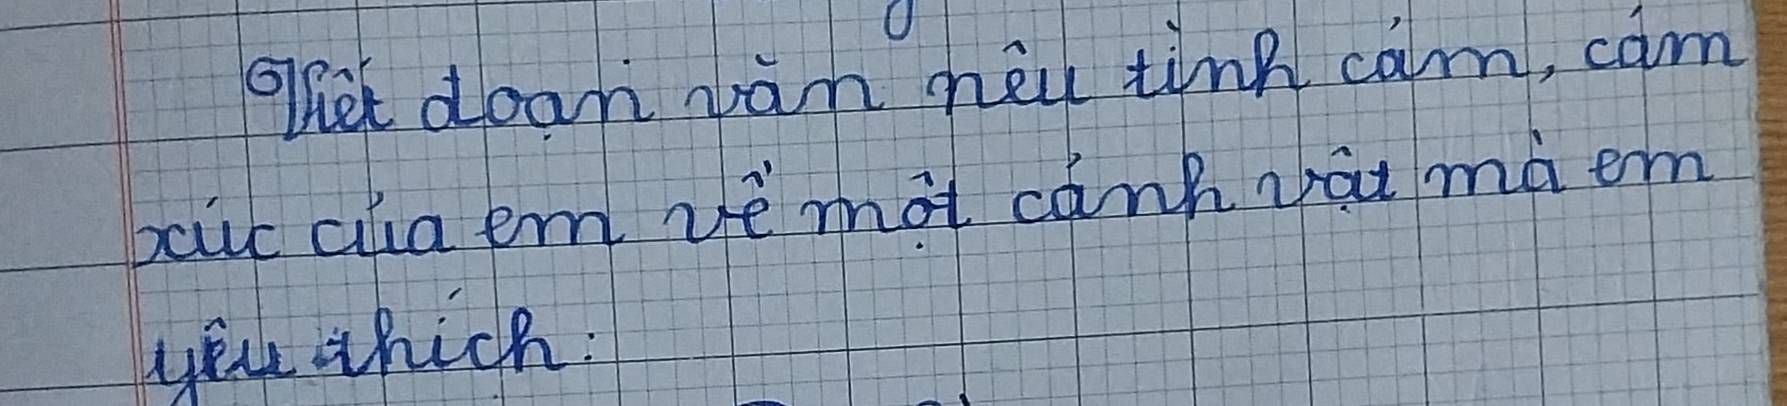 Viết đoạn văn nêu tình cảm, cảm
xúc của em về một cảnh vật mà em
yêu thích: